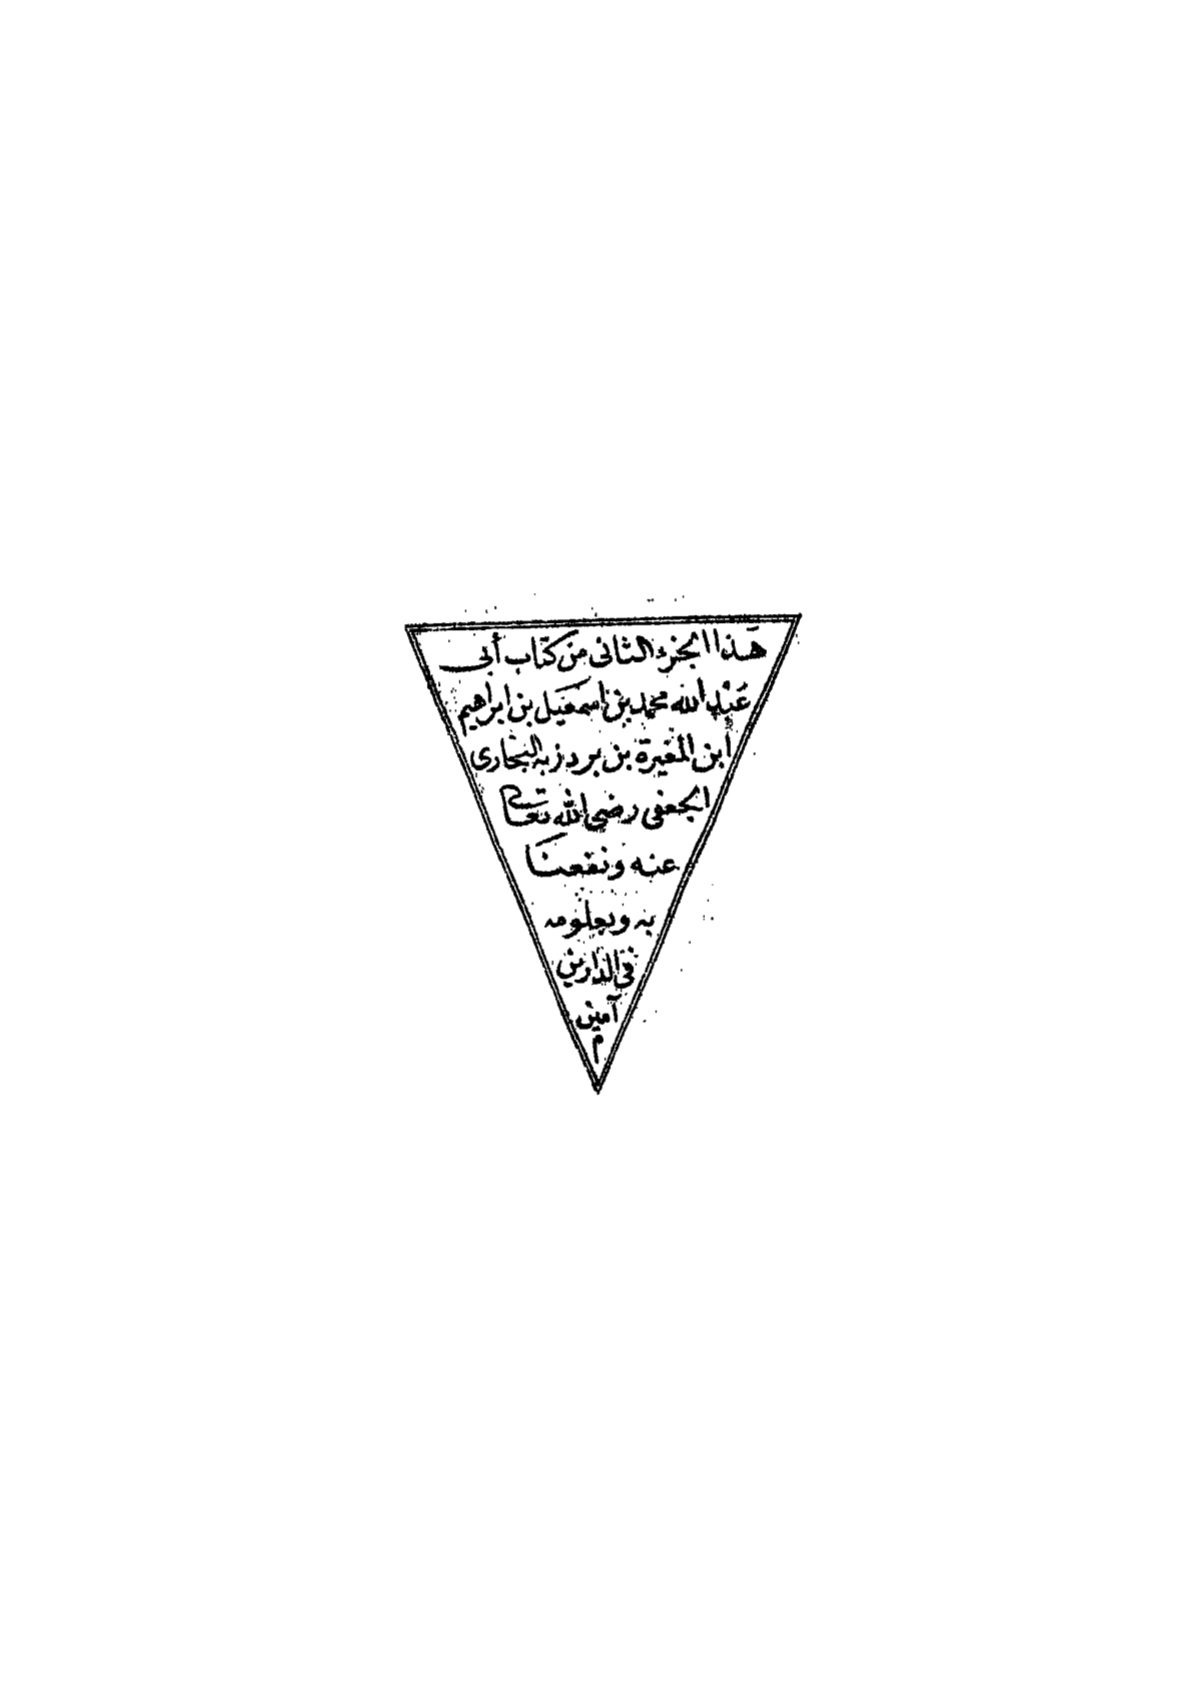 هذا الجزء الثانى من كتاب أبى
عبد الله محمد بن اسمعيل بن ابراهيم
ابن المغيرة بن بردزبه البخارى
الجعفى رضى الله تعالى
عنه ونفعنا
به وبعلومه
فى الدارين
آمين
م